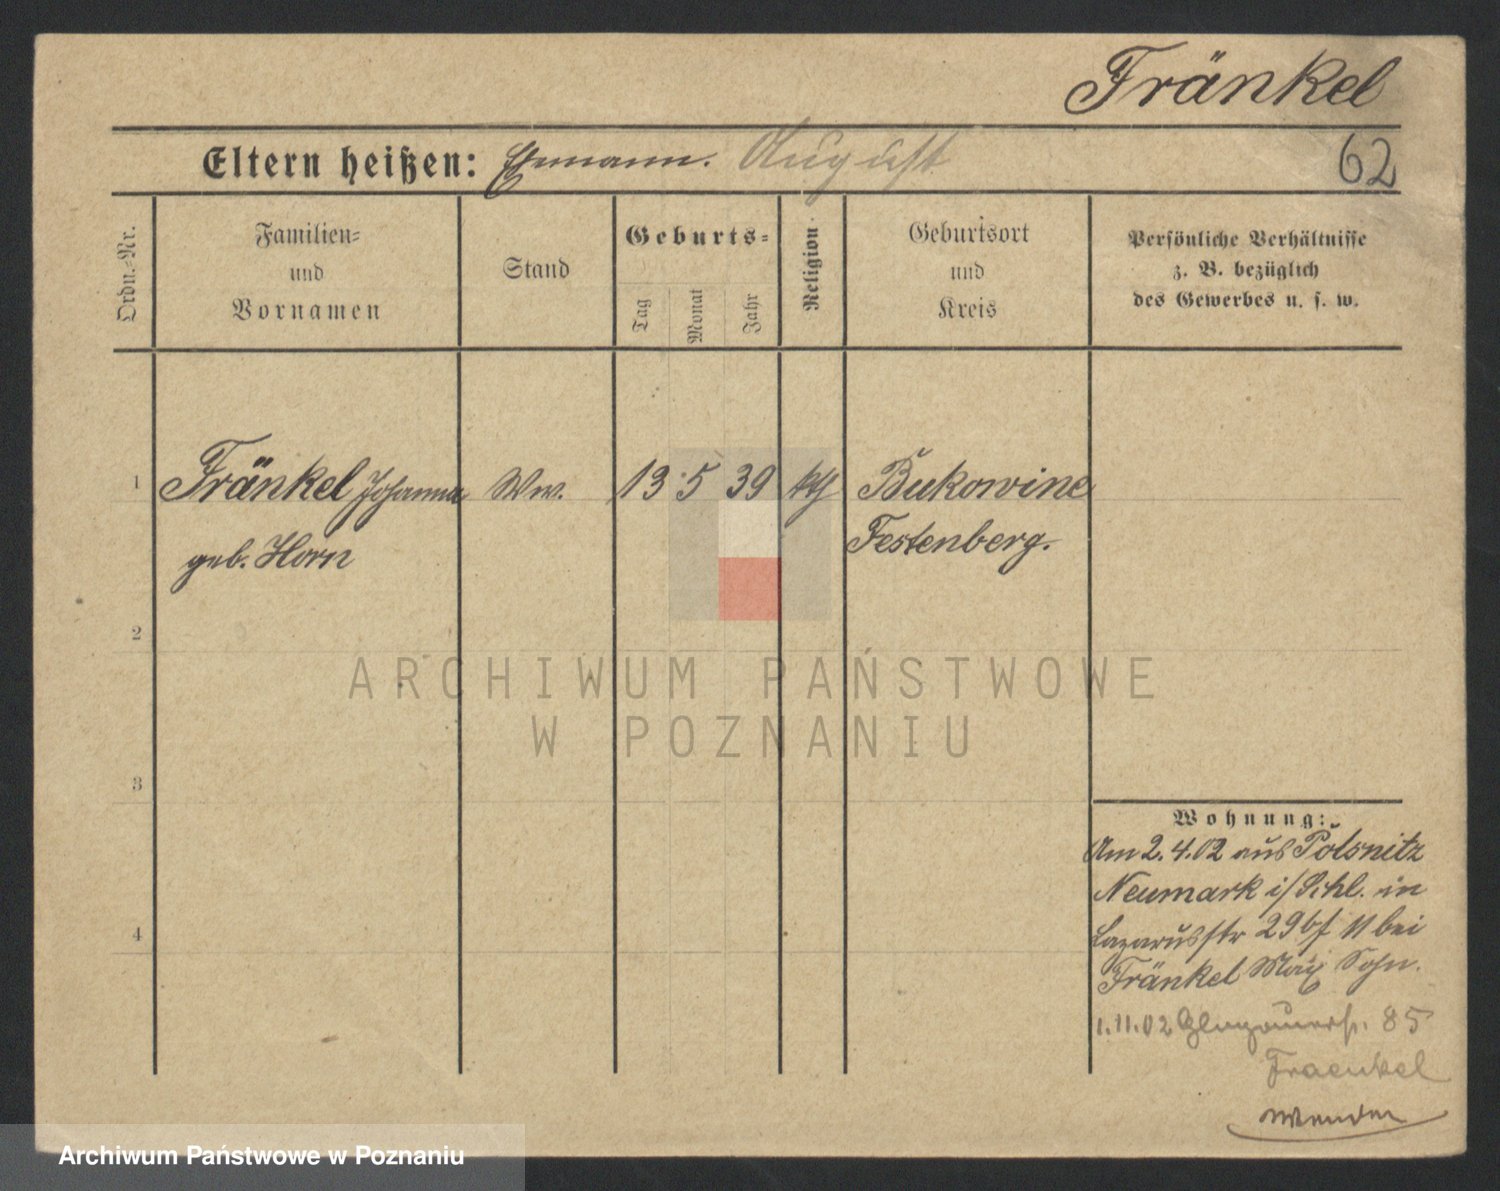 Fränkel
Eltern heißen: Ehmann. August
62
Ordn.-Nr.
Familien-
und
Vornamen
Stand
Geburts-
Tag
Monat
Jahr
Religion
Geburtsort
und
Kreis
Persönliche Verhältnisse
z. B. bezüglich
des Gewerbes u. s. w.
1 Fränkel Johanna Ww. 13 5 39 kth Bukowine
geb. Horn Festenberg.
2
ARCHIWUM PAŃSTWOWE
W POZNANIU
3
Wohnung:
Am 2.4.02 aus Polsnitz
Neumark i/Schl. in
4
Lazarusstr 29bf 11 bei
Fränkel Max Sohn.
1.11.02 Glogauerstr. 85
Fraenkel
Wenden
Archiwum Państwowe w Poznaniu